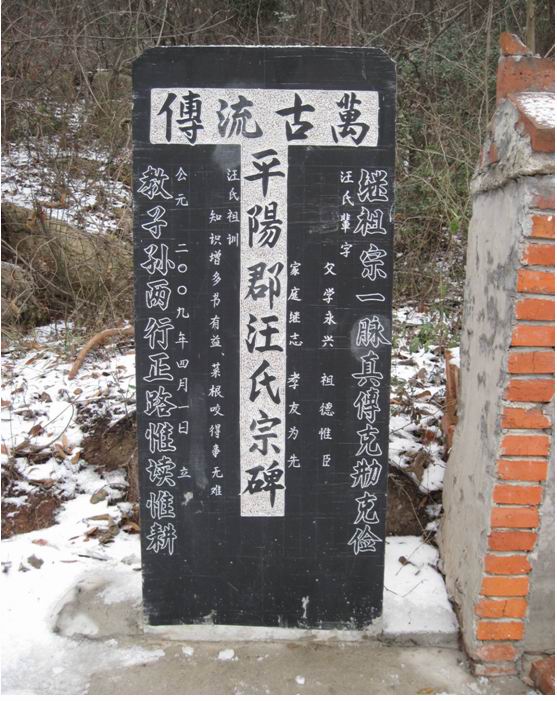 萬古流傳
继祖宗一脉真傳克勤克俭
汪氏輩字
父学永兴 祖德惟臣
家庭继志 孝友为先
平陽郡汪氏宗碑
汪氏祖训
知识增多书有益、菜根咬得事无难
公元 二〇〇九年四月一日 立
教子孙两行正路惟读惟耕